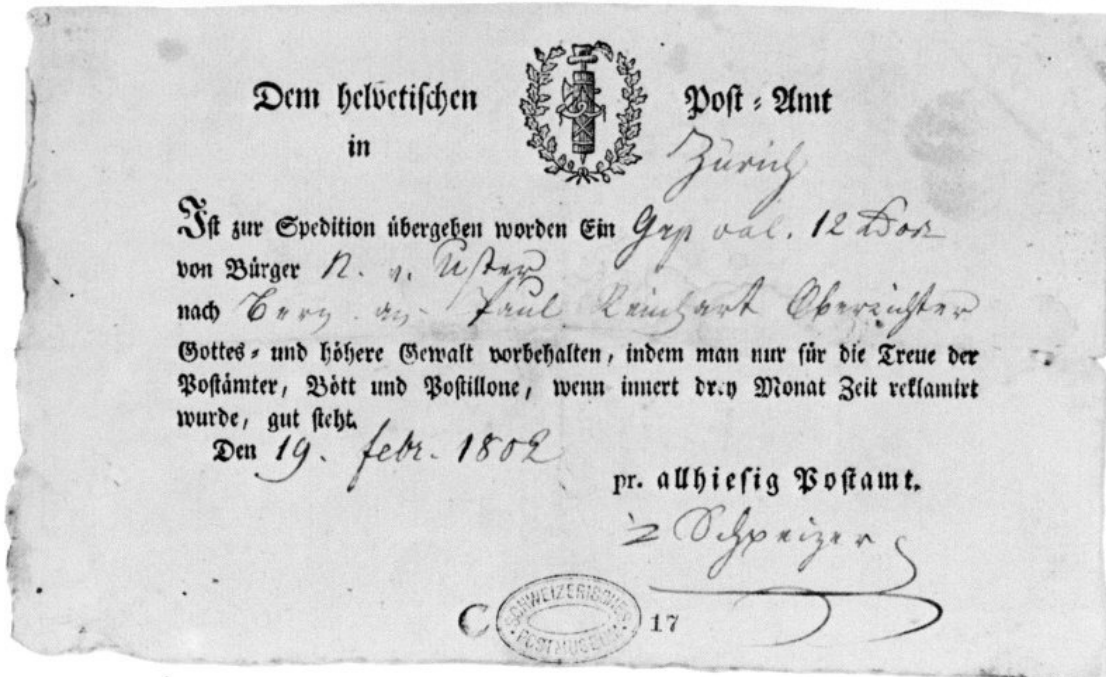 Dem helvetischen Post-Amt
in Zürich
Ist zur Spedition übergeben worden Ein val. 12
von Bürger Uster
nach Bern an Paul Reinhart Oberrichter
Gottes- und höhere Gewalt vorbehalten, indem man nur für die Treue der
Postämter, Bött und Postillone, wenn innert drey Monat Zeit reklamirt
wurde, gut steht.
Den 19. febr. 1802
pr. allhiesig Postamt.
Schweizer
C 17
SCHWEIZERISCHES
POSTMUSEUM